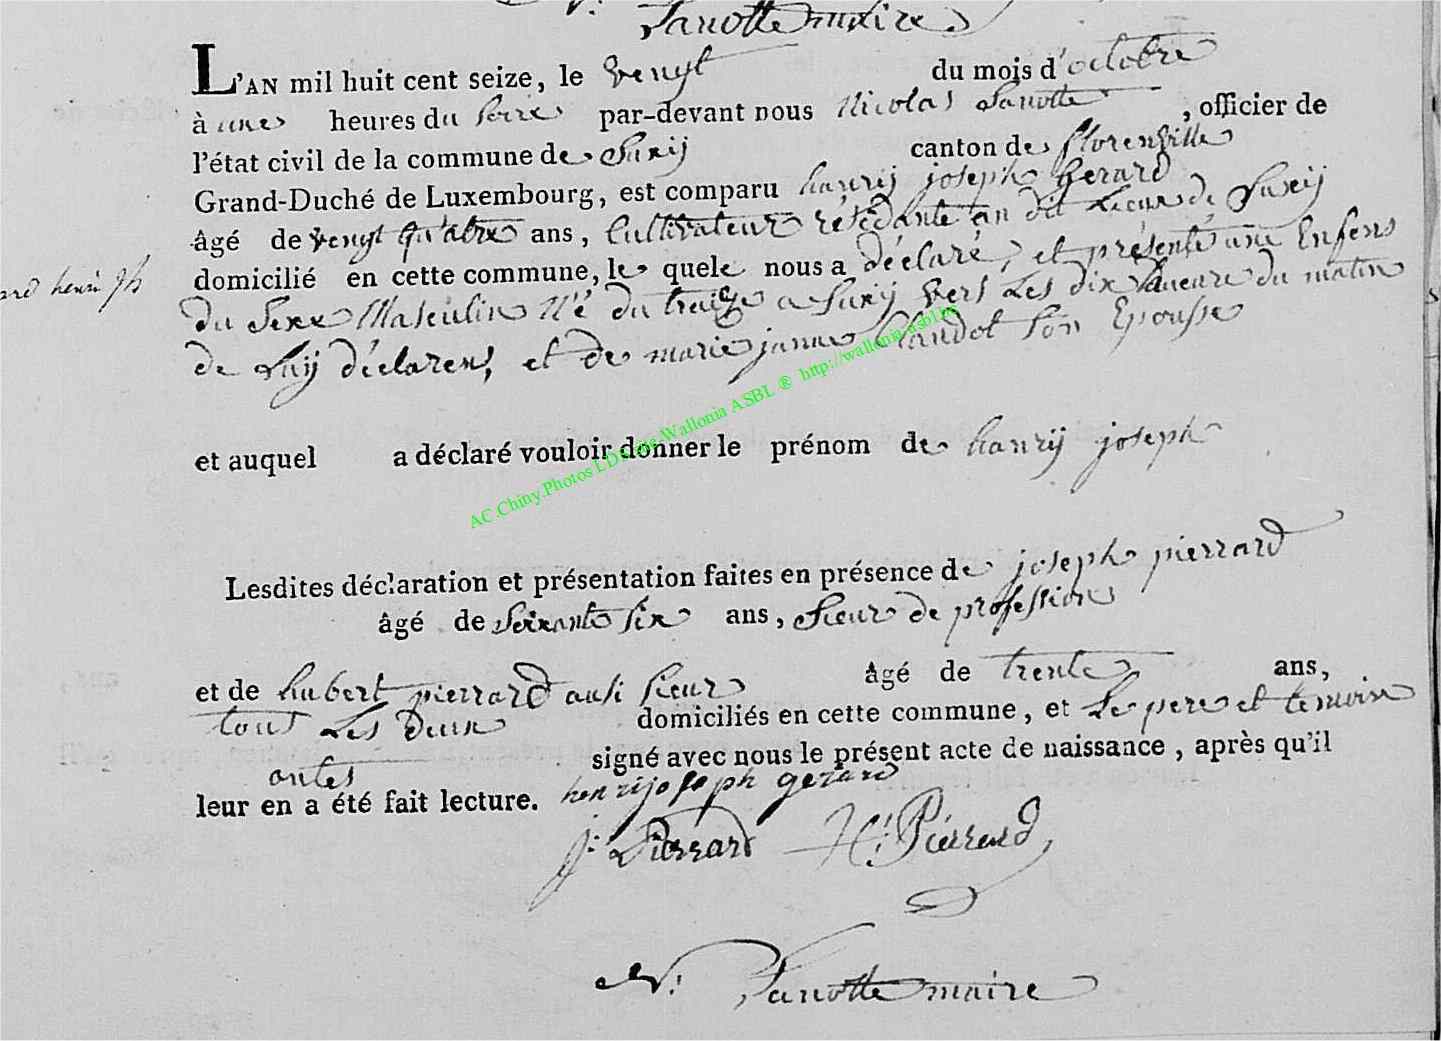 N. Lanotte maire
L'AN mil huit cent seize, le vengt du mois d'octobre
à une heures du soire par-devant nous Nicolas Lanotte, officier de
l'état civil de la commune de Suxij canton de florenville
Grand-Duché de Luxembourg, est comparu hanrij joseph Gerard
âgé de vengt quatre ans, Cultivateur résédante an dit Lieux de Suxij
domicilié en cette commune, le quele nous a déclaré, et présenté une Enfens
henri Jh
du Sexe Masculin Né du traize a Suxij vers Les dix haeure du matin
de Luij déclarens, et de marie janne Claudot Son Epousse
et auquel a déclaré vouloir donner le prénom de hanrij joseph
AC.Chiny.Photos LDS site.Wallonia ASBL ® http://wallonia-asbl.be
Lesdites déclaration et présentation faites en présence de joseph pierrard
âgé de Soixante six ans, Sieur de profession
et de hubert pierrard ausi Sieur âgé de trente ans,
tous Les deux domiciliés en cette commune, et Le pere et temoin
ontes signé avec nous le présent acte de naissance, après qu'il
leur en a été fait lecture. henrijoseph gerard
J. Pierrard H. Pierrard
N. Lanotte maire